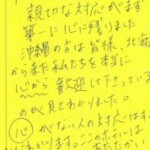 親切な対応がまず
第一に心に残りました
沖縄の方は皆様、北海
から来た私たちを本当に
心から歓迎して下さっている
のが見てわかりました。
心がない人の対応はす
わかります。ここのホテルは
あたたかい